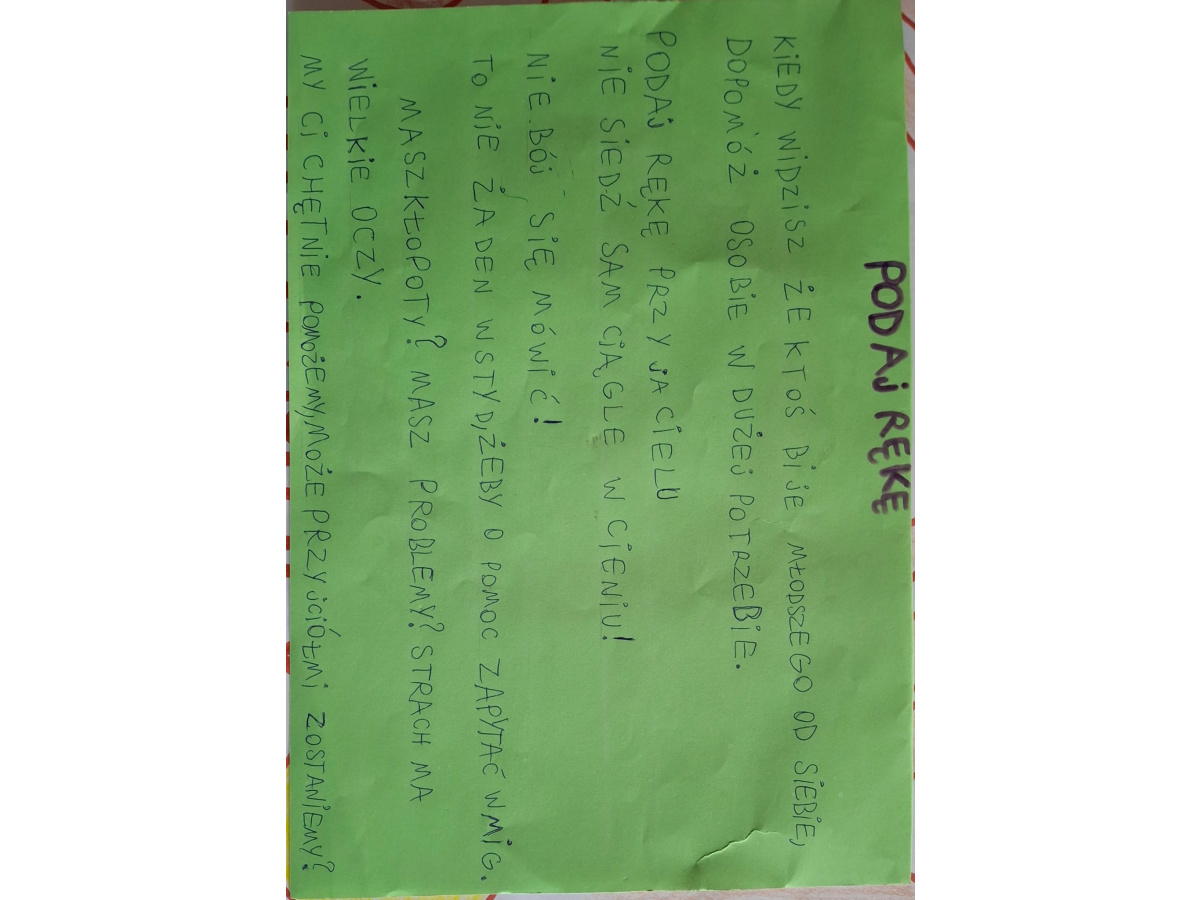 PODAJ RĘKĘ
KIEDY WIDZISZ ŻE KTOŚ BIJE MŁODSZEGO OD SIEBIE,
DOPOMÓŻ OSOBIE W DUŻEJ POTRZEBIE.
PODAJ RĘKĘ PRZYJACIELU
NIE SIEDŹ SAM CIĄGLE W CIENIU!
NIE BÓJ SIĘ MÓWIĆ!
TO NIE ŻADEN WSTYD, ŻEBY O POMOC ZAPYTAĆ W MIG.
MASZ KŁOPOTY? MASZ PROBLEMY? STRACH MA
WIELKIE OCZY.
MY CI CHĘTNIE POMOŻEMY, MOŻE PRZYJCIÓŁMI ZOSTANIEMY?